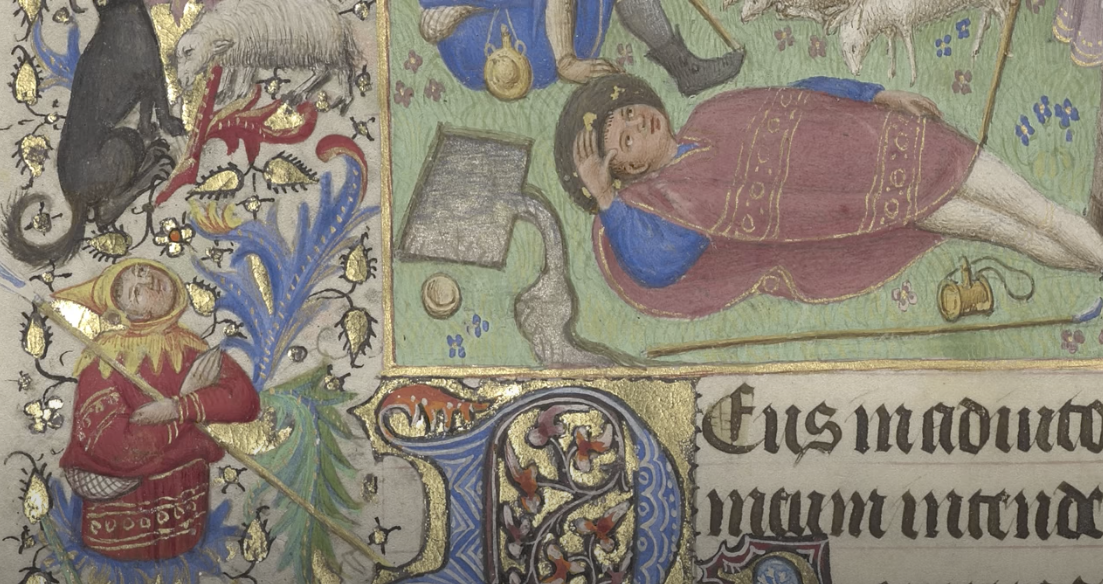 Deus in adiuto
meum intende